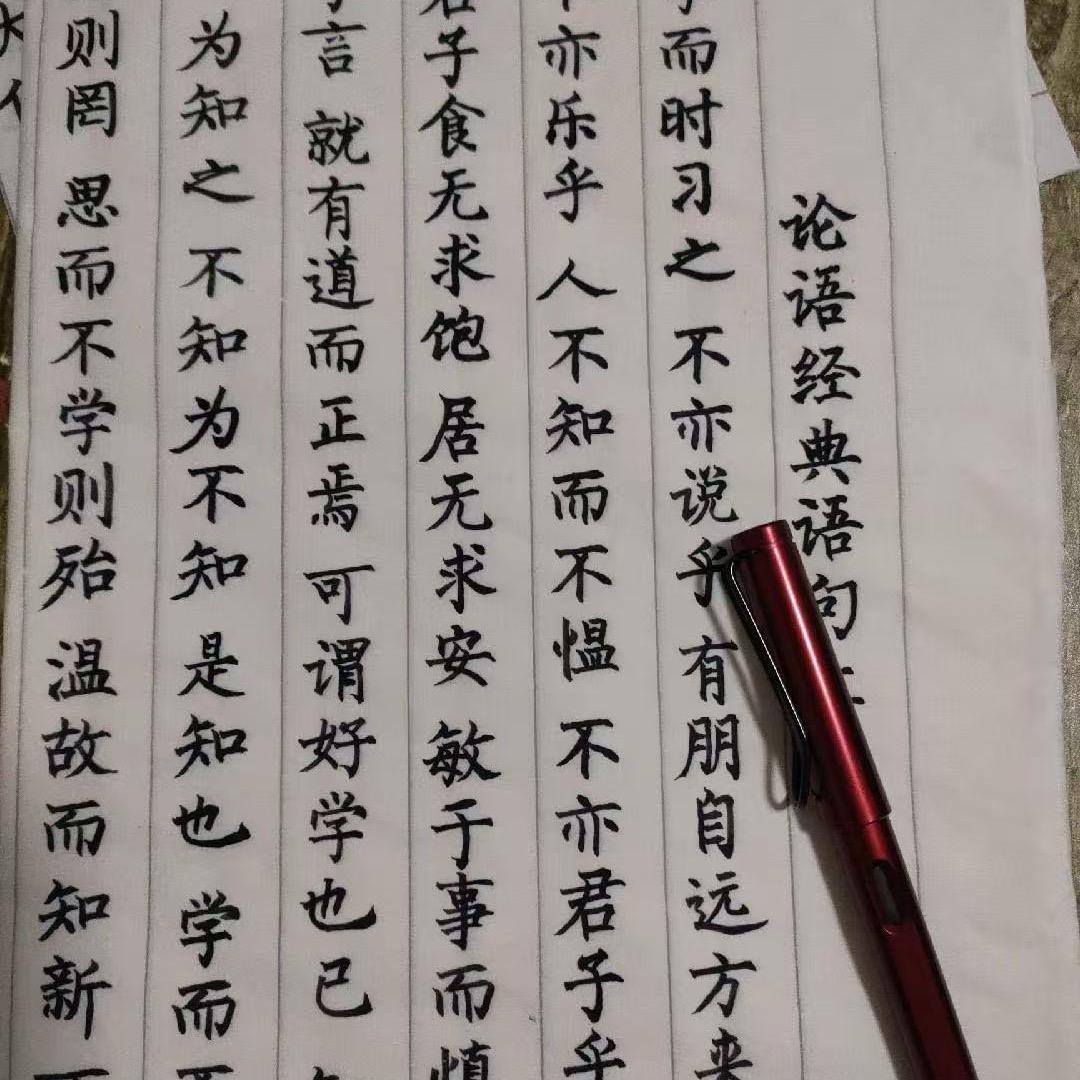 论语经典语句
而时习之 不亦说乎 有朋自远方来
亦乐乎 人不知而不愠 不亦君子乎
君子食无求饱 居无求安 敏于事而慎
言 就有道而正焉 可谓好学也已
为知之 不知为不知 是知也 学而不
则罔 思而不学则殆 温故而知新